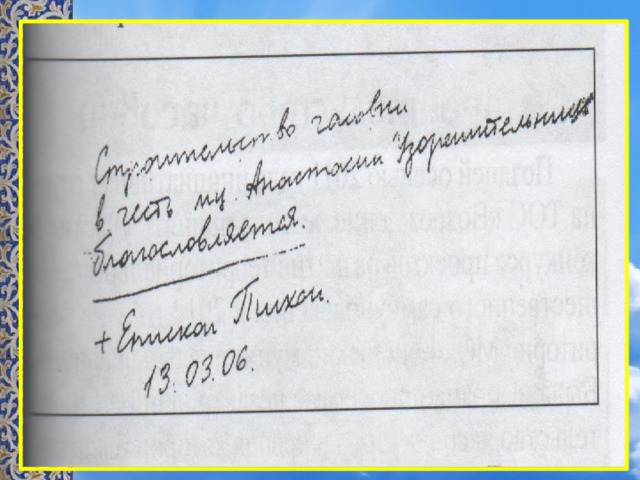 Строительство часовни
в честь мц. Анастасии Узорешительницы
благословляется.
+ Епископ Тихон.
13.03.06.